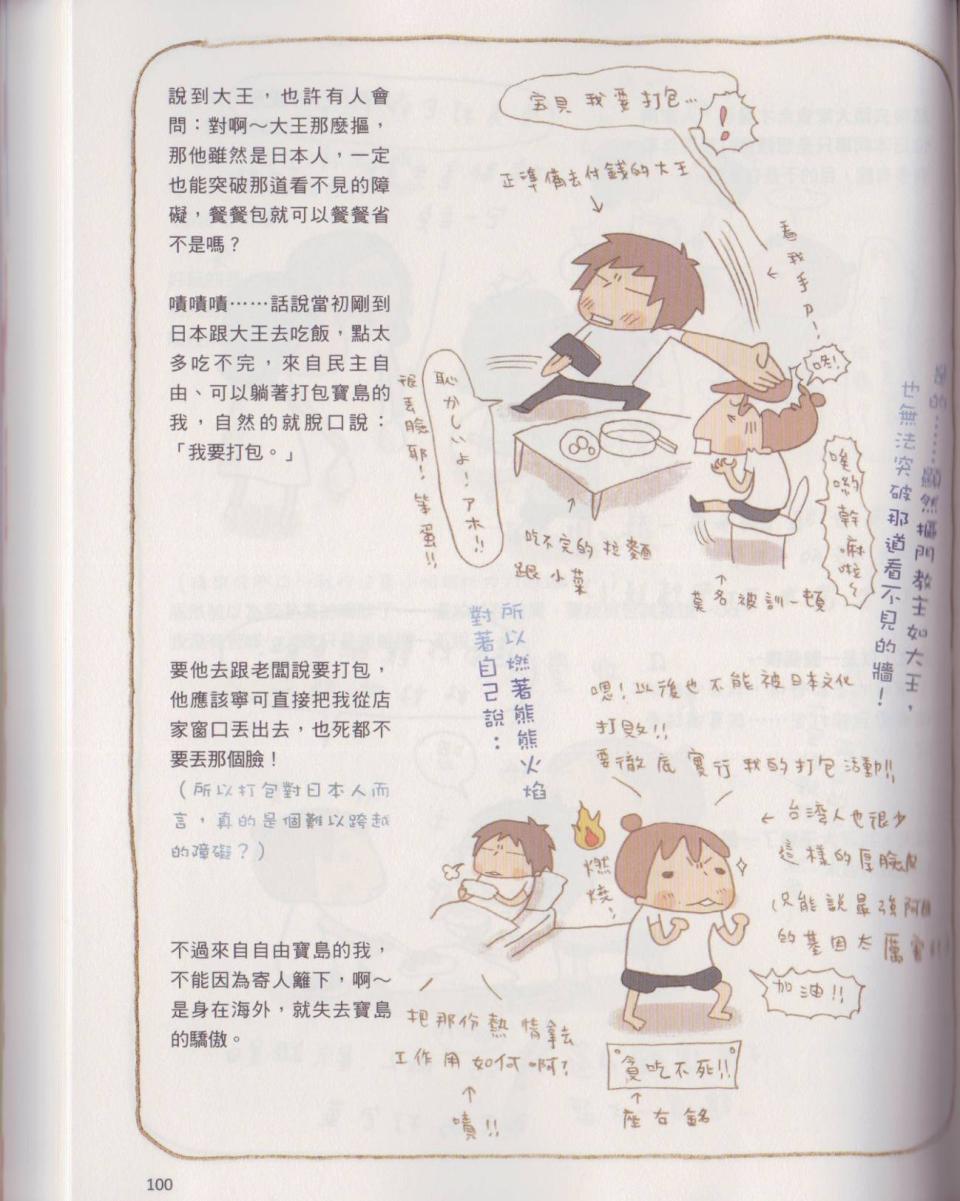 說到大王，也許有人會
問：對啊～大王那麼摳，
那他雖然是日本人，一定
也能突破那道看不見的障
礙，餐餐包就可以餐餐省
不是嗎？
嘖嘖嘖……話說當初剛到
日本跟大王去吃飯，點太
多吃不完，來自民主自
由、可以躺著打包寶島的
我，自然的就脫口說：
「我要打包。」
宝貝 我要打包…
！
正準備去付錢的大王
看我手刀！
咚！
恥かしいよ！アホ!!
很丟臉耶！笨蛋!!
唉喲幹嘛啦～
吃不完的拉麵
跟小菜
莫名被訓一頓
是的……顯然摳門教主如大王，
也無法突破那道看不見的牆！
要他去跟老闆說要打包，
他應該寧可直接把我從店
家窗口丟出去，也死都不
要丟那個臉！
（所以打包對日本人而
言，真的是個難以跨越
的障礙？）
不過來自自由寶島的我，
不能因為寄人籬下，啊～
是身在海外，就失去寶島
的驕傲。
所以燃著熊熊火焰
對著自己說：
嗯！以後也不能被日本文化
打敗!!
要徹底實行我的打包活動!!
燃燒！
台湾人也很少
這樣的厚臉皮
只能說最強阿
的基因太厲害!!!
加油!!
把那份熱情拿去
工作用如何啊？
嘖!!
"貪吃不死!!"
座右銘
100